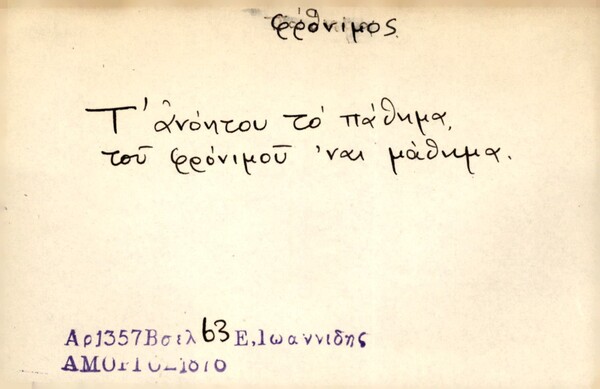 φρόνιμος
Τ' ἀνόητου τό πάθημα,
τοῦ φρόνιμοῦ 'ναι μάθημα.
Αρ1357Βσιλ63Ε,Ιωαννιδης
ΑΜΟΡΓΟΣ-1876